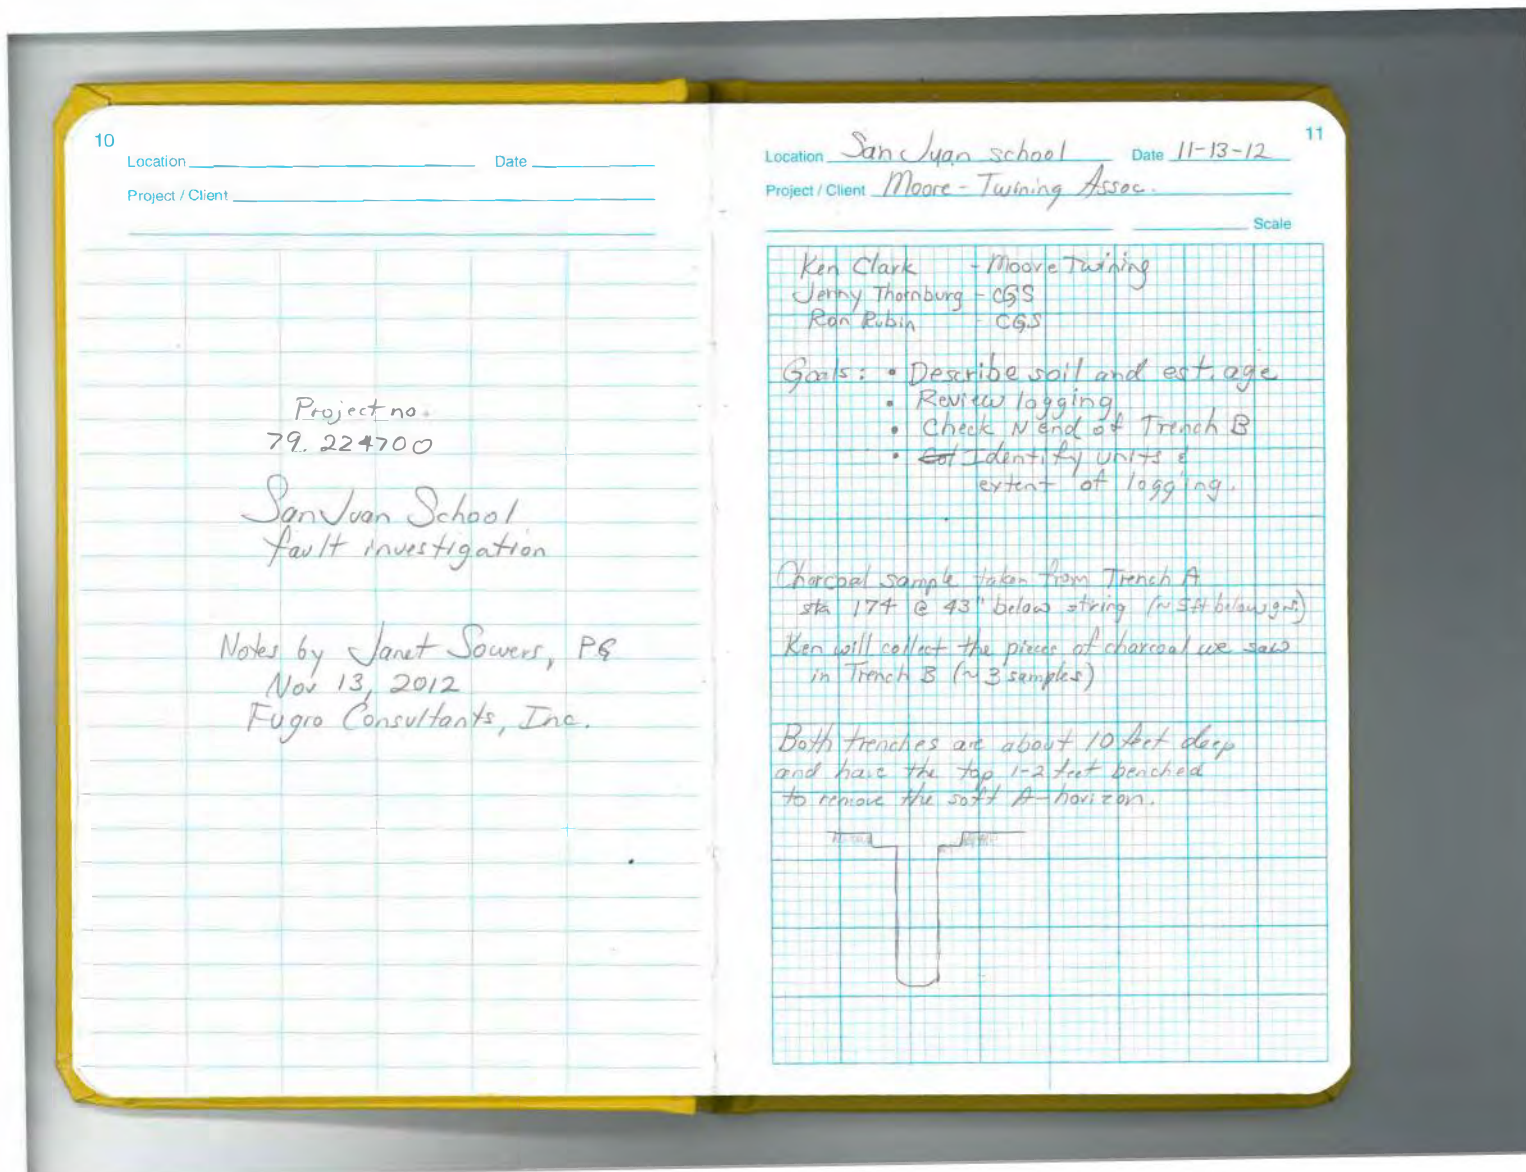 10
Location Date
Project / Client
Project no.
79. 224700
San Juan School
fault investigation
Notes by Janet Sowers, PG
Nov 13, 2012
Fugro Consultants, Inc.
11
Location San Juan school Date 11-13-12
Project / Client Moore - Twining Assoc.
Scale
Ken Clark - Moore Twining
Jenny Thornburg - CGS
Ron Rubin - CGS
Goals: • Describe soil and est. age
• Review logging
• Check N end of Trench B
• Identify units &
extent of logging.
Charcoal sample taken from Trench A
sta 174 @ 43" below string (~5ft below gns.)
Ken will collect the pieces of charcoal we saw
in Trench B (~3 samples)
Both trenches are about 10 feet deep
and have the top 1-2 feet benched
to remove the soft A-horizon.